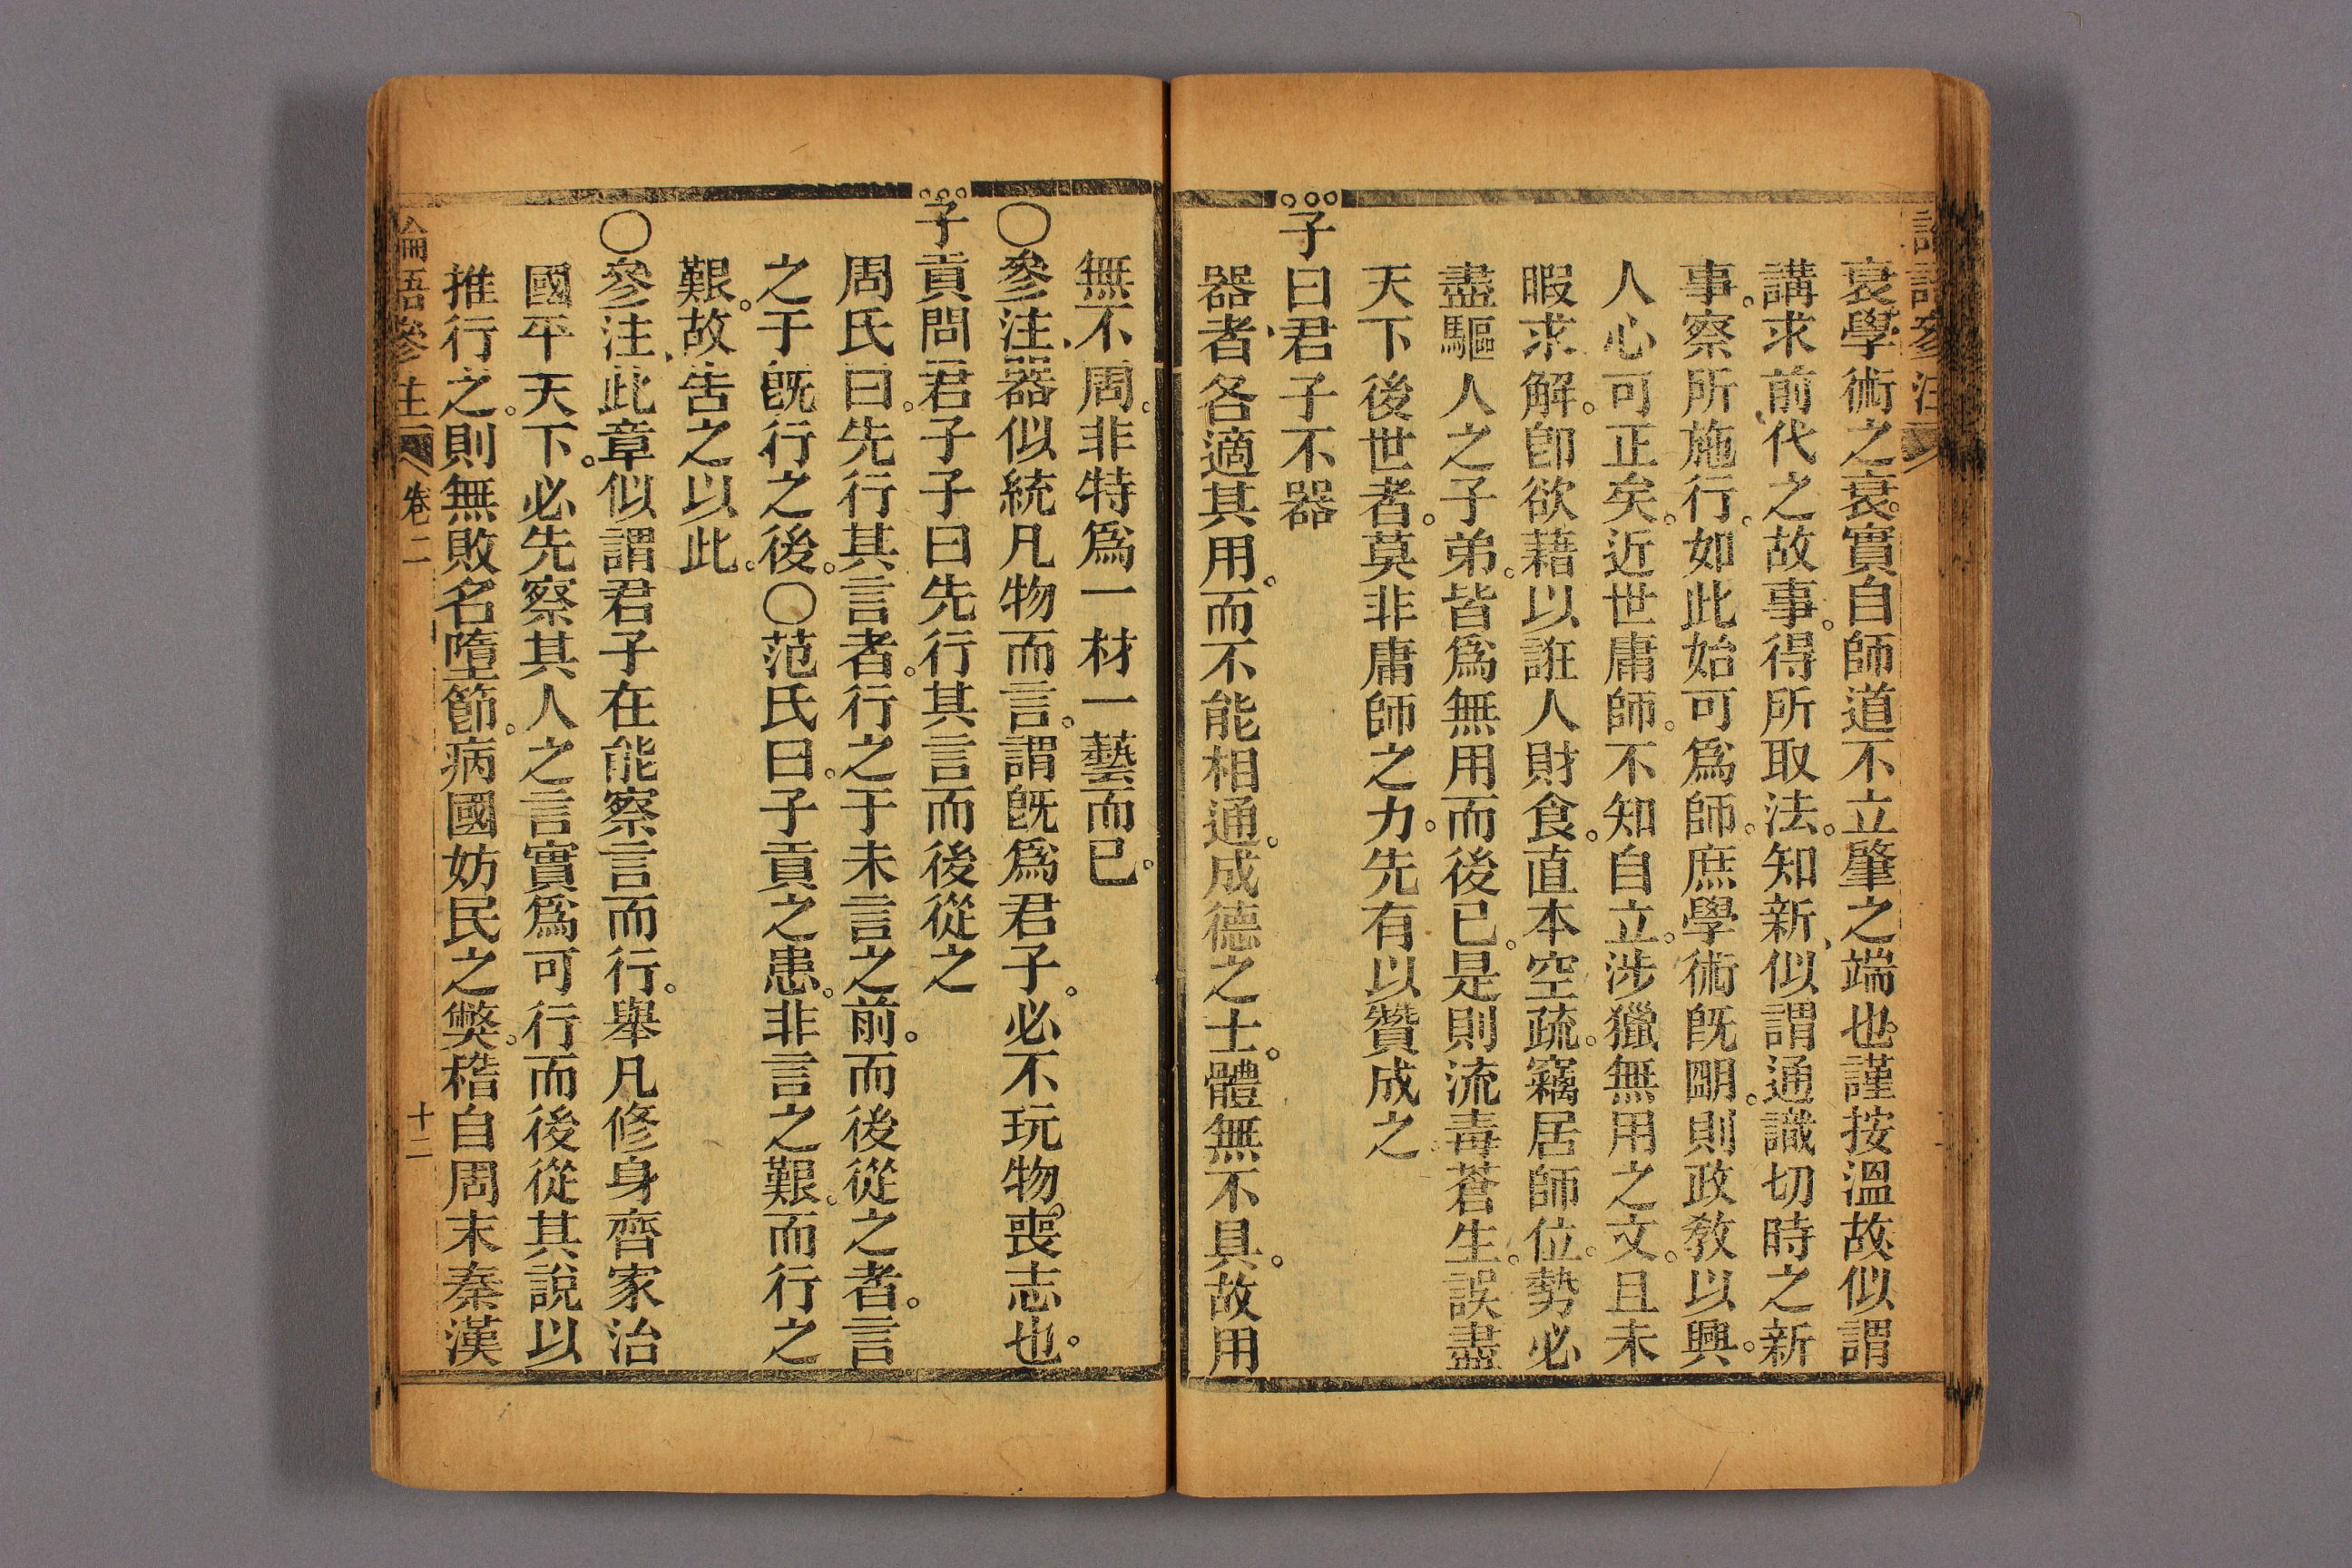 論語參注
衰學術之衰。實自師道不立肇之端也。謹按溫故似謂
講求前代之故事。得所取法。知新、似謂通識切時之新
事。察所施行。如此始可爲師。庶學術旣明。則政敎以興。
人心可正矣。近世庸師。不知自立。涉獵無用之文。且未
暇求解。卽欲藉以誑人財食。直本空疏。竊居師位。勢必
盡驅人之子弟。皆爲無用而後已。是則流毒蒼生。誤盡
天下後世者。莫非庸師之力。先有以贊成之
子曰君子不器
器者、各適其用。而不能相通。成德之士。體無不具。故用
無不周。非特爲一材一藝而已。
〇參注、器似統凡物而言。謂旣爲君子。必不玩物。喪志也。
子貢問君子子曰先行其言而後從之
周氏曰。先行其言者。行之于未言之前。而後從之者。言
之于旣行之後。〇范氏曰。子貢之患。非言之艱。而行之
艱。故告之以此。
〇參注、此章似謂君子在能察言而行。舉凡修身齊家治
國平天下。必先察其人之言實爲可行而後從其說以
推行之。則無敗名墮節。病國妨民之弊。稽自周末秦漢
論語參注 卷二 十二